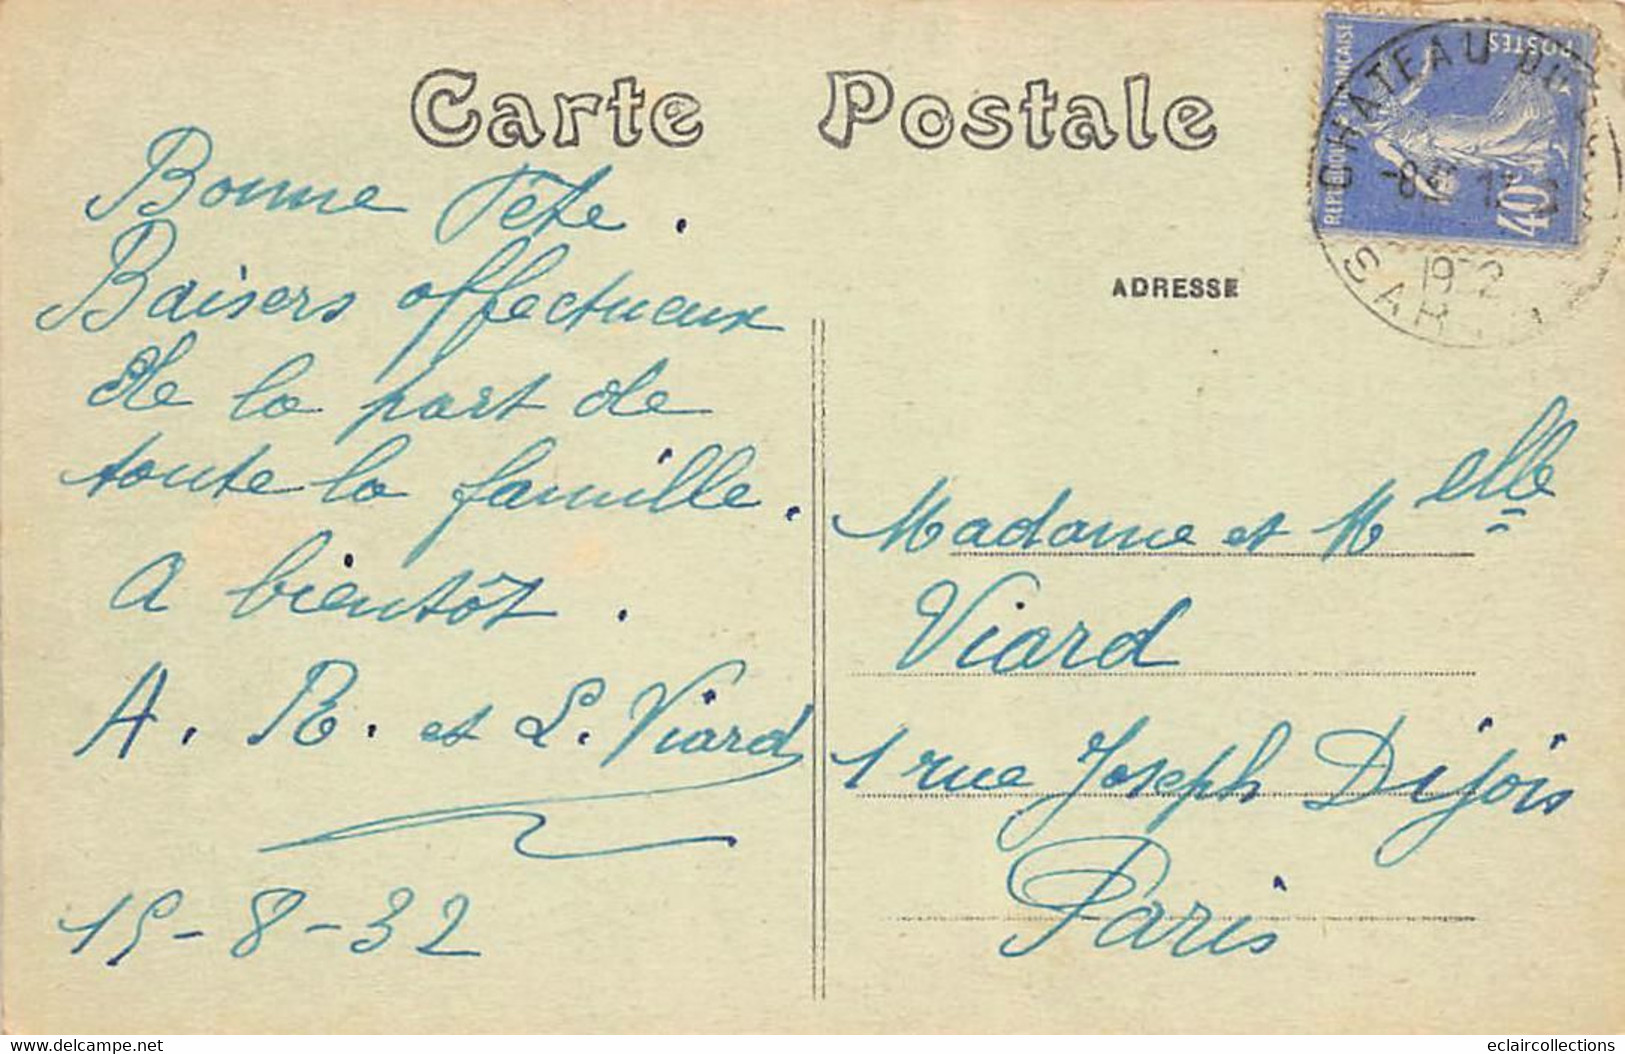 Carte Postale
Bonne Fête.
Baisers affectueux
de la part de
toute la famille.
A bientôt.
A. R. et L. Viard
15-8-32
ADRESSE
Madame et Melle
Viard
1 rue Joseph Dijois
Paris
REPUBLIQUE FRANÇAISE
POSTES
40c
CHATEAU DU
1932
www.delcampe.net
eclaircollections